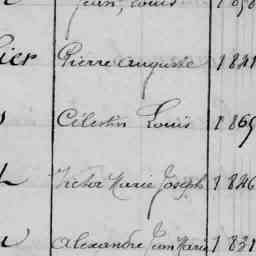 Jean, Louis
ier Pierre Auguste 1841
Célestin Louis 1869
Victor Marie Joseph 1846
Alexandre Jean Marie 1831